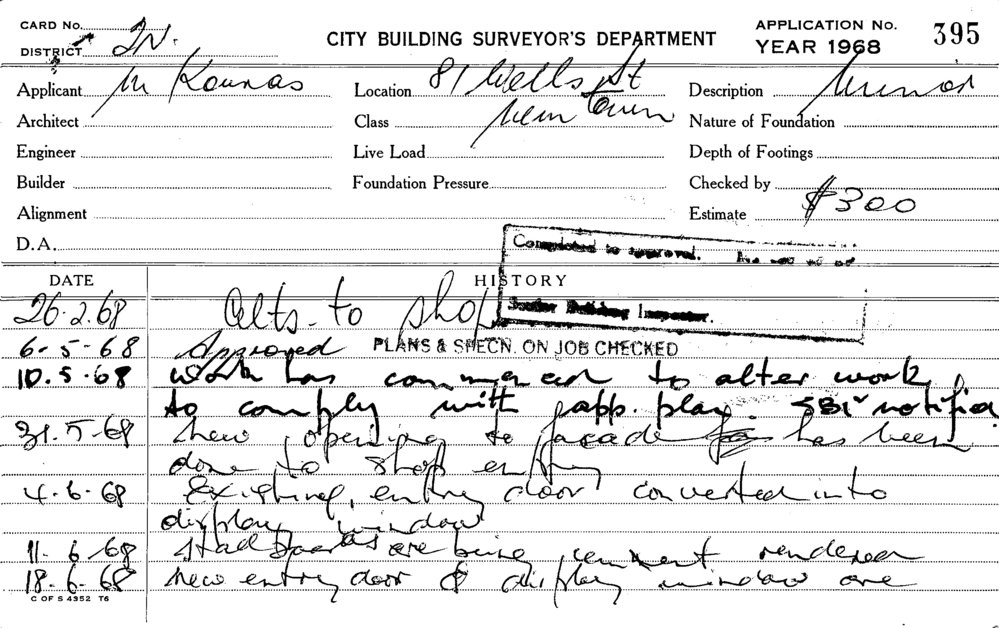 CARD No.
DISTRICT 2N.
CITY BUILDING SURVEYOR'S DEPARTMENT
APPLICATION No. 395
YEAR 1968
Applicant M Kounas
Location 81 Wells St
Description Minor
Architect
Class New Town
Nature of Foundation
Engineer
Live Load
Depth of Footings
Builder
Foundation Pressure
Checked by
Alignment
Estimate $300
D.A.
Completed to approval.
Building Inspector.
DATE HISTORY
26.2.68 Alts. to shop
6-5-68 Approved PLANS & SPECN. ON JOB CHECKED
10.5.68 work has commenced to alter work
to comply with app. plan. SBI notified.
31.5.68 New opening to facade has been
done to shop entry
4.6.68 Existing entry door converted into
display window
11.6.68 are being cement rendered
18.6.68 New entry door & display window are
C OF S 4352 T6